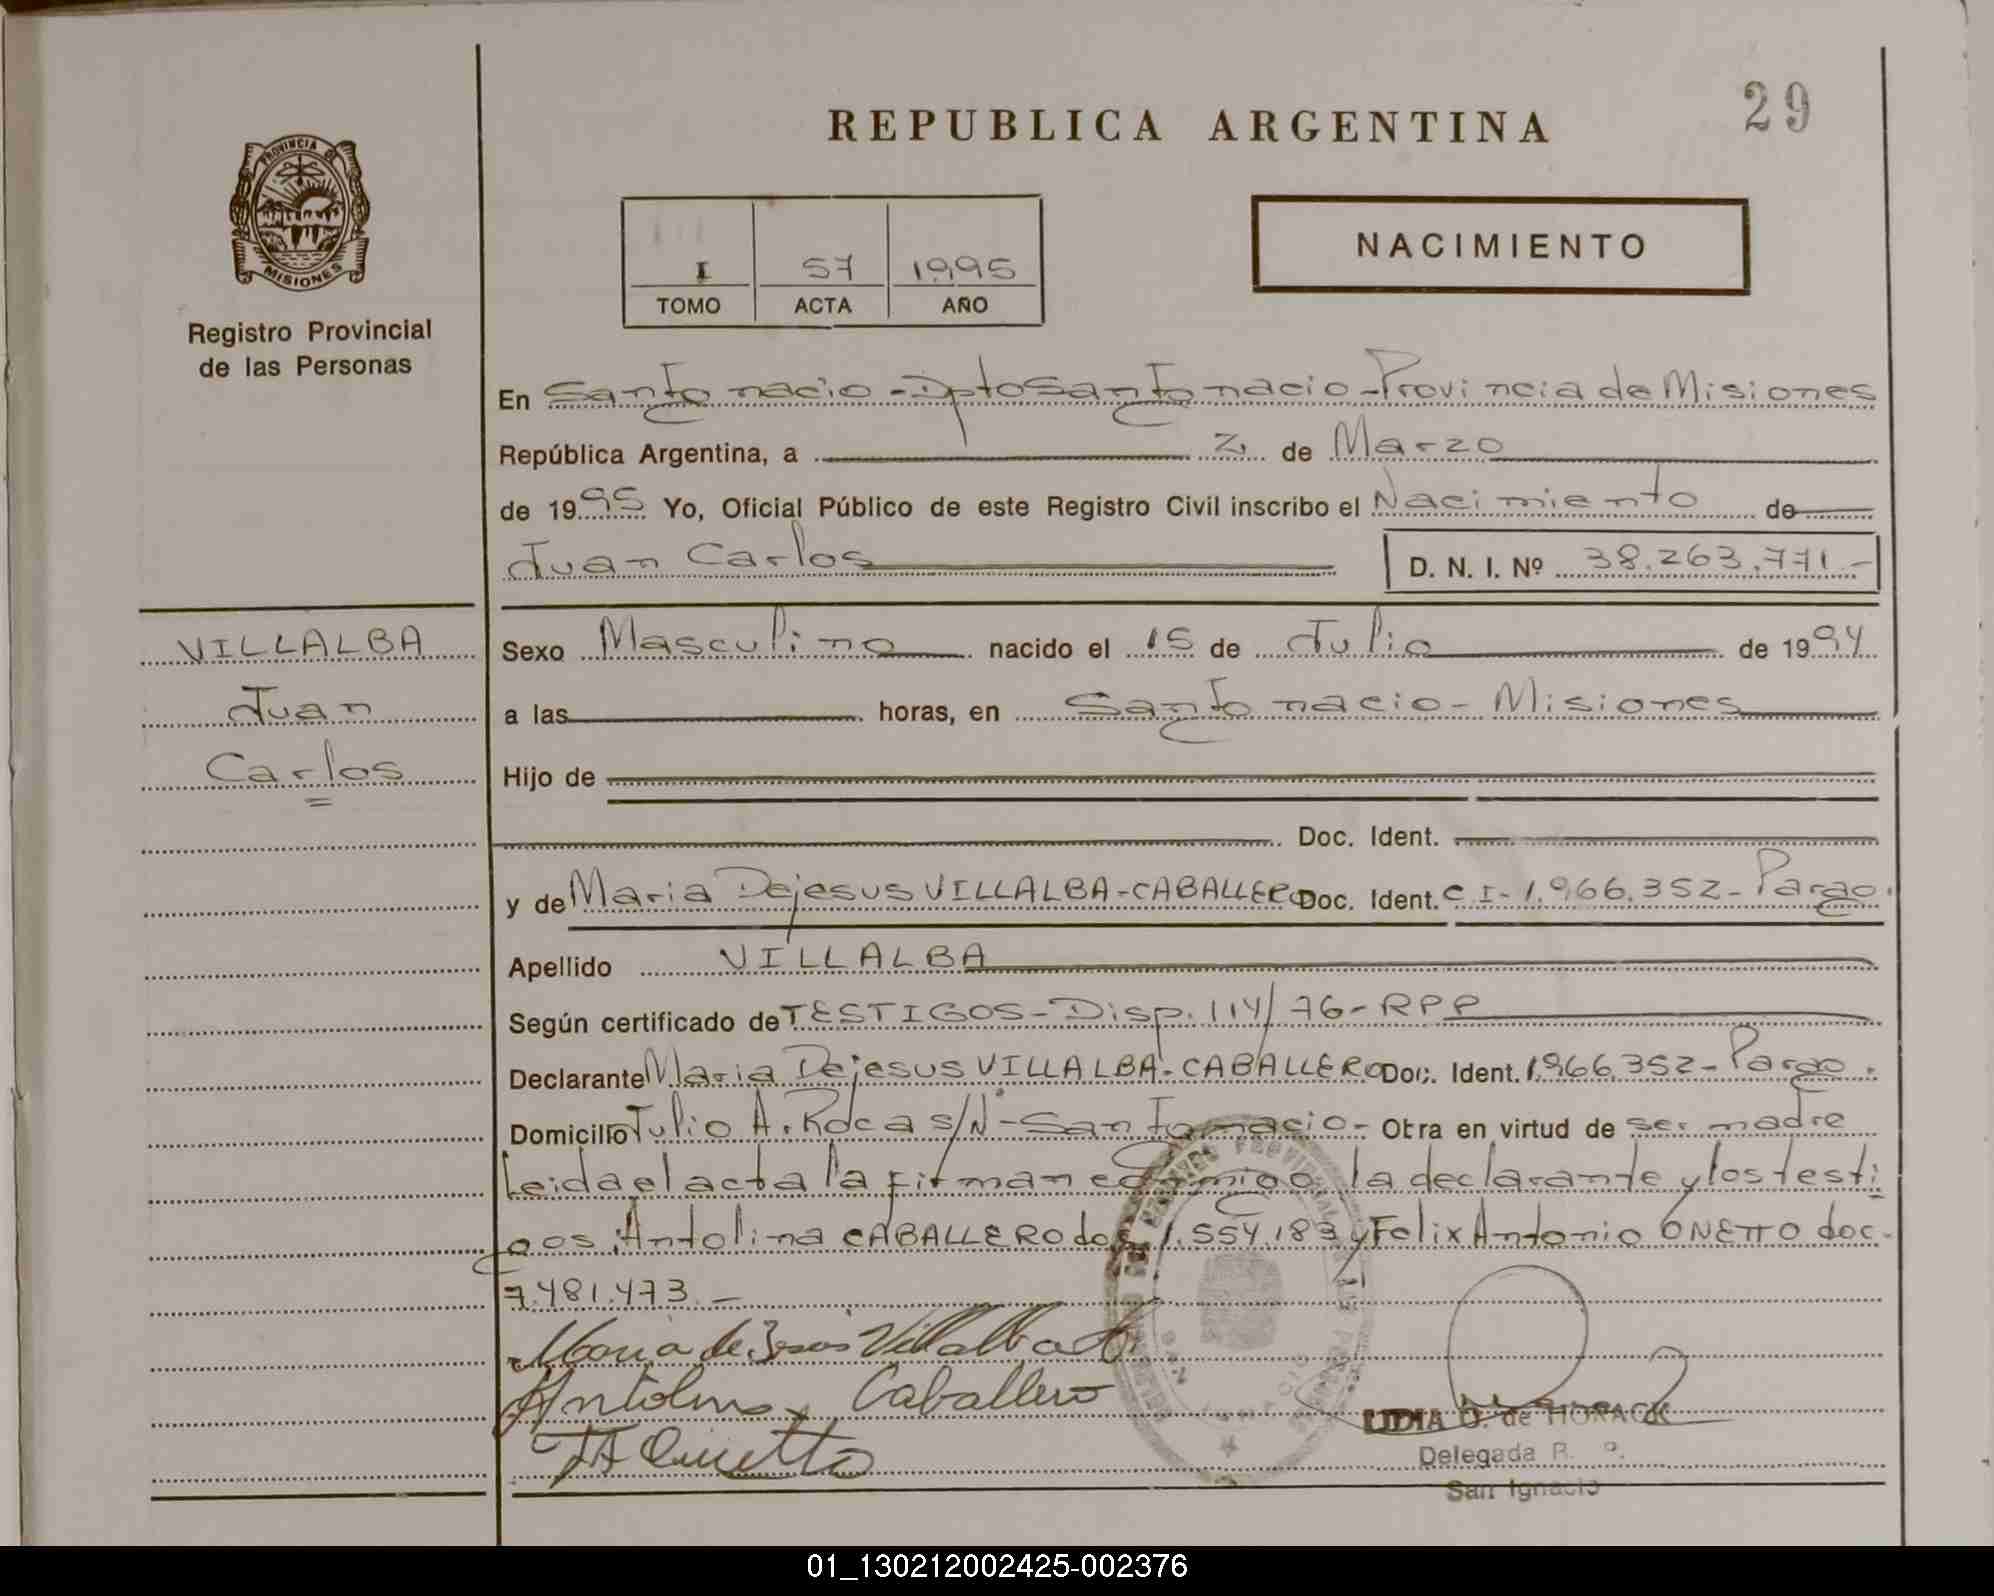 29
REPUBLICA ARGENTINA
PROVINCIA DE
MISIONES
Registro Provincial
de las Personas
I 57 1995
TOMO ACTA AÑO
NACIMIENTO
En San Ignacio - Dpto San Ignacio - Provincia de Misiones
República Argentina, a 2 de Marzo
de 1995 Yo, Oficial Público de este Registro Civil inscribo el Nacimiento de
Juan Carlos D. N. I. Nº 38.263.771.-
VILLALBA
Juan
Carlos
Sexo Masculino nacido el 15 de Julio de 1994
a las horas, en San Ignacio - Misiones
Hijo de
Doc. Ident.
y de Maria Dejesus VILLALBA - CABALLERO Doc. Ident. C I - 1.966.352 - Pargo.
Apellido VILLALBA
Según certificado de TESTIGOS - Disp. 114/76 - RPP
Declarante Maria Dejesus VILLALBA - CABALLERO Doc. Ident. 1.966.352 - Pargo.
Domicilio Julio A. Roca s/Nº - San Ignacio - Otra en virtud de ser madre
Leida el acta la firman conmigo, la declarante y los testi
gos: Antolina CABALLERO doc 1.554.183 y Felix Antonio ONETTO doc.
7.481.473. -
Maria de Jesus Villalba
Antolina Caballero
FA Onetto
LIDIA O. de HORACK
Delegada R. P.
San Ignacio
01_130212002425-002376